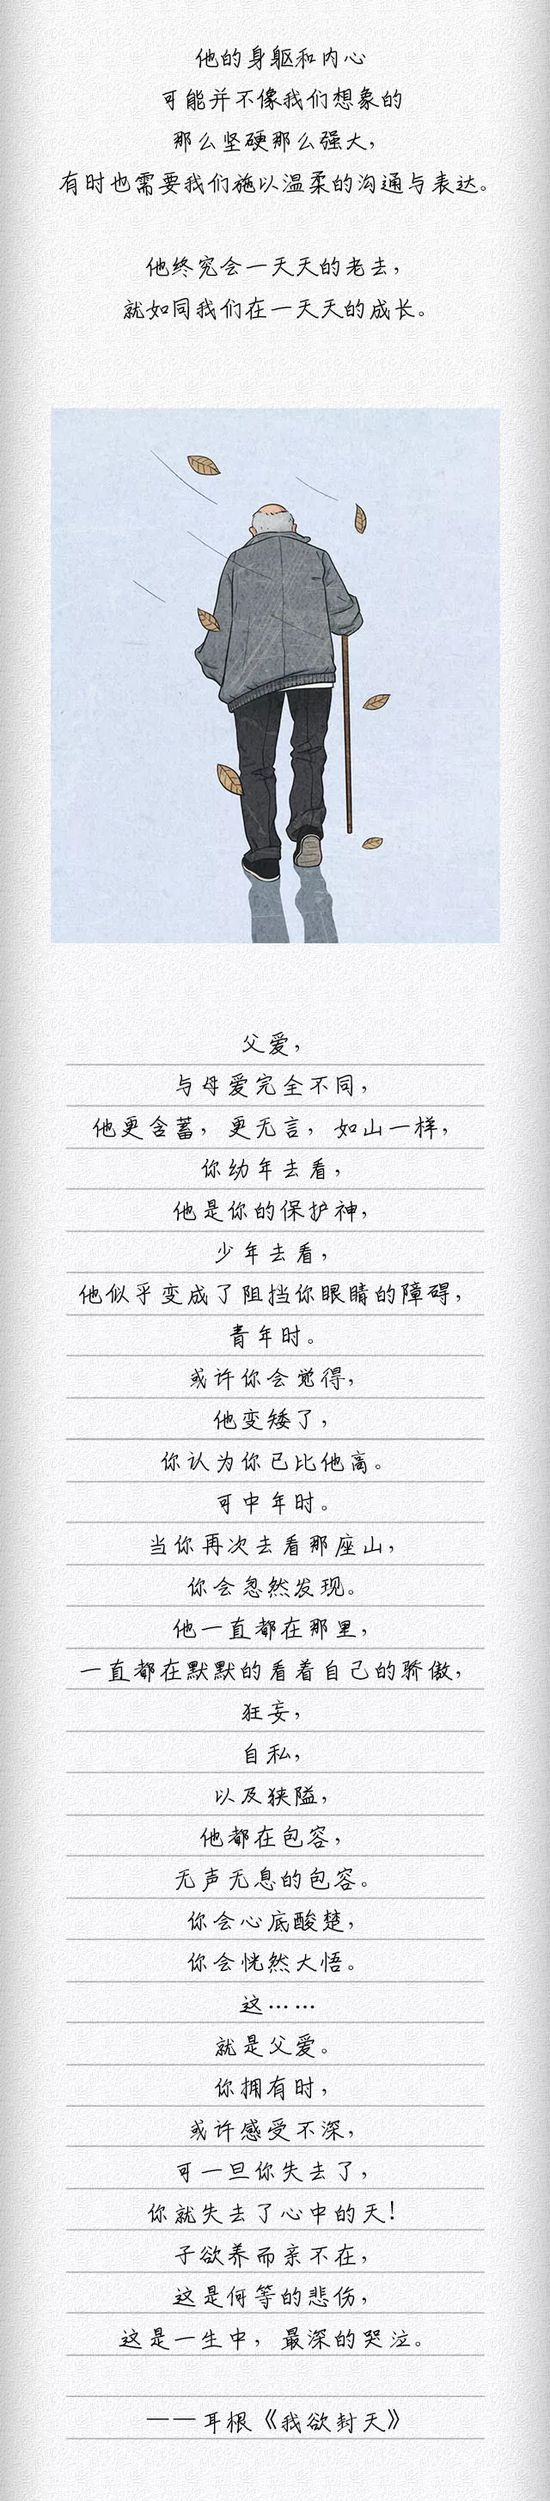 他的身躯和内心
可能并不像我们想象的
那么坚硬那么强大，
有时也需要我们施以温柔的沟通与表达。
他终究会一天天的老去，
就如同我们在一天天的成长。
父爱，
与母爱完全不同，
他更含蓄，更无言，如山一样，
你幼年去看，
他是你的保护神，
少年去看，
他似乎变成了阻挡你眼睛的障碍，
青年时。
或许你会觉得，
他变矮了，
你认为你已比他高。
可中年时。
当你再次去看那座山，
你会忽然发现。
他一直都在那里，
一直都在默默的看着自己的骄傲，
狂妄，
自私，
以及狭隘，
他都在包容，
无声无息的包容。
你会心底酸楚，
你会恍然大悟。
这……
就是父爱。
你拥有时，
或许感受不深，
可一旦你失去了，
你就失去了心中的天！
子欲养而亲不在，
这是何等的悲伤，
这是一生中，最深的哭泣。
——耳根《我欲封天》